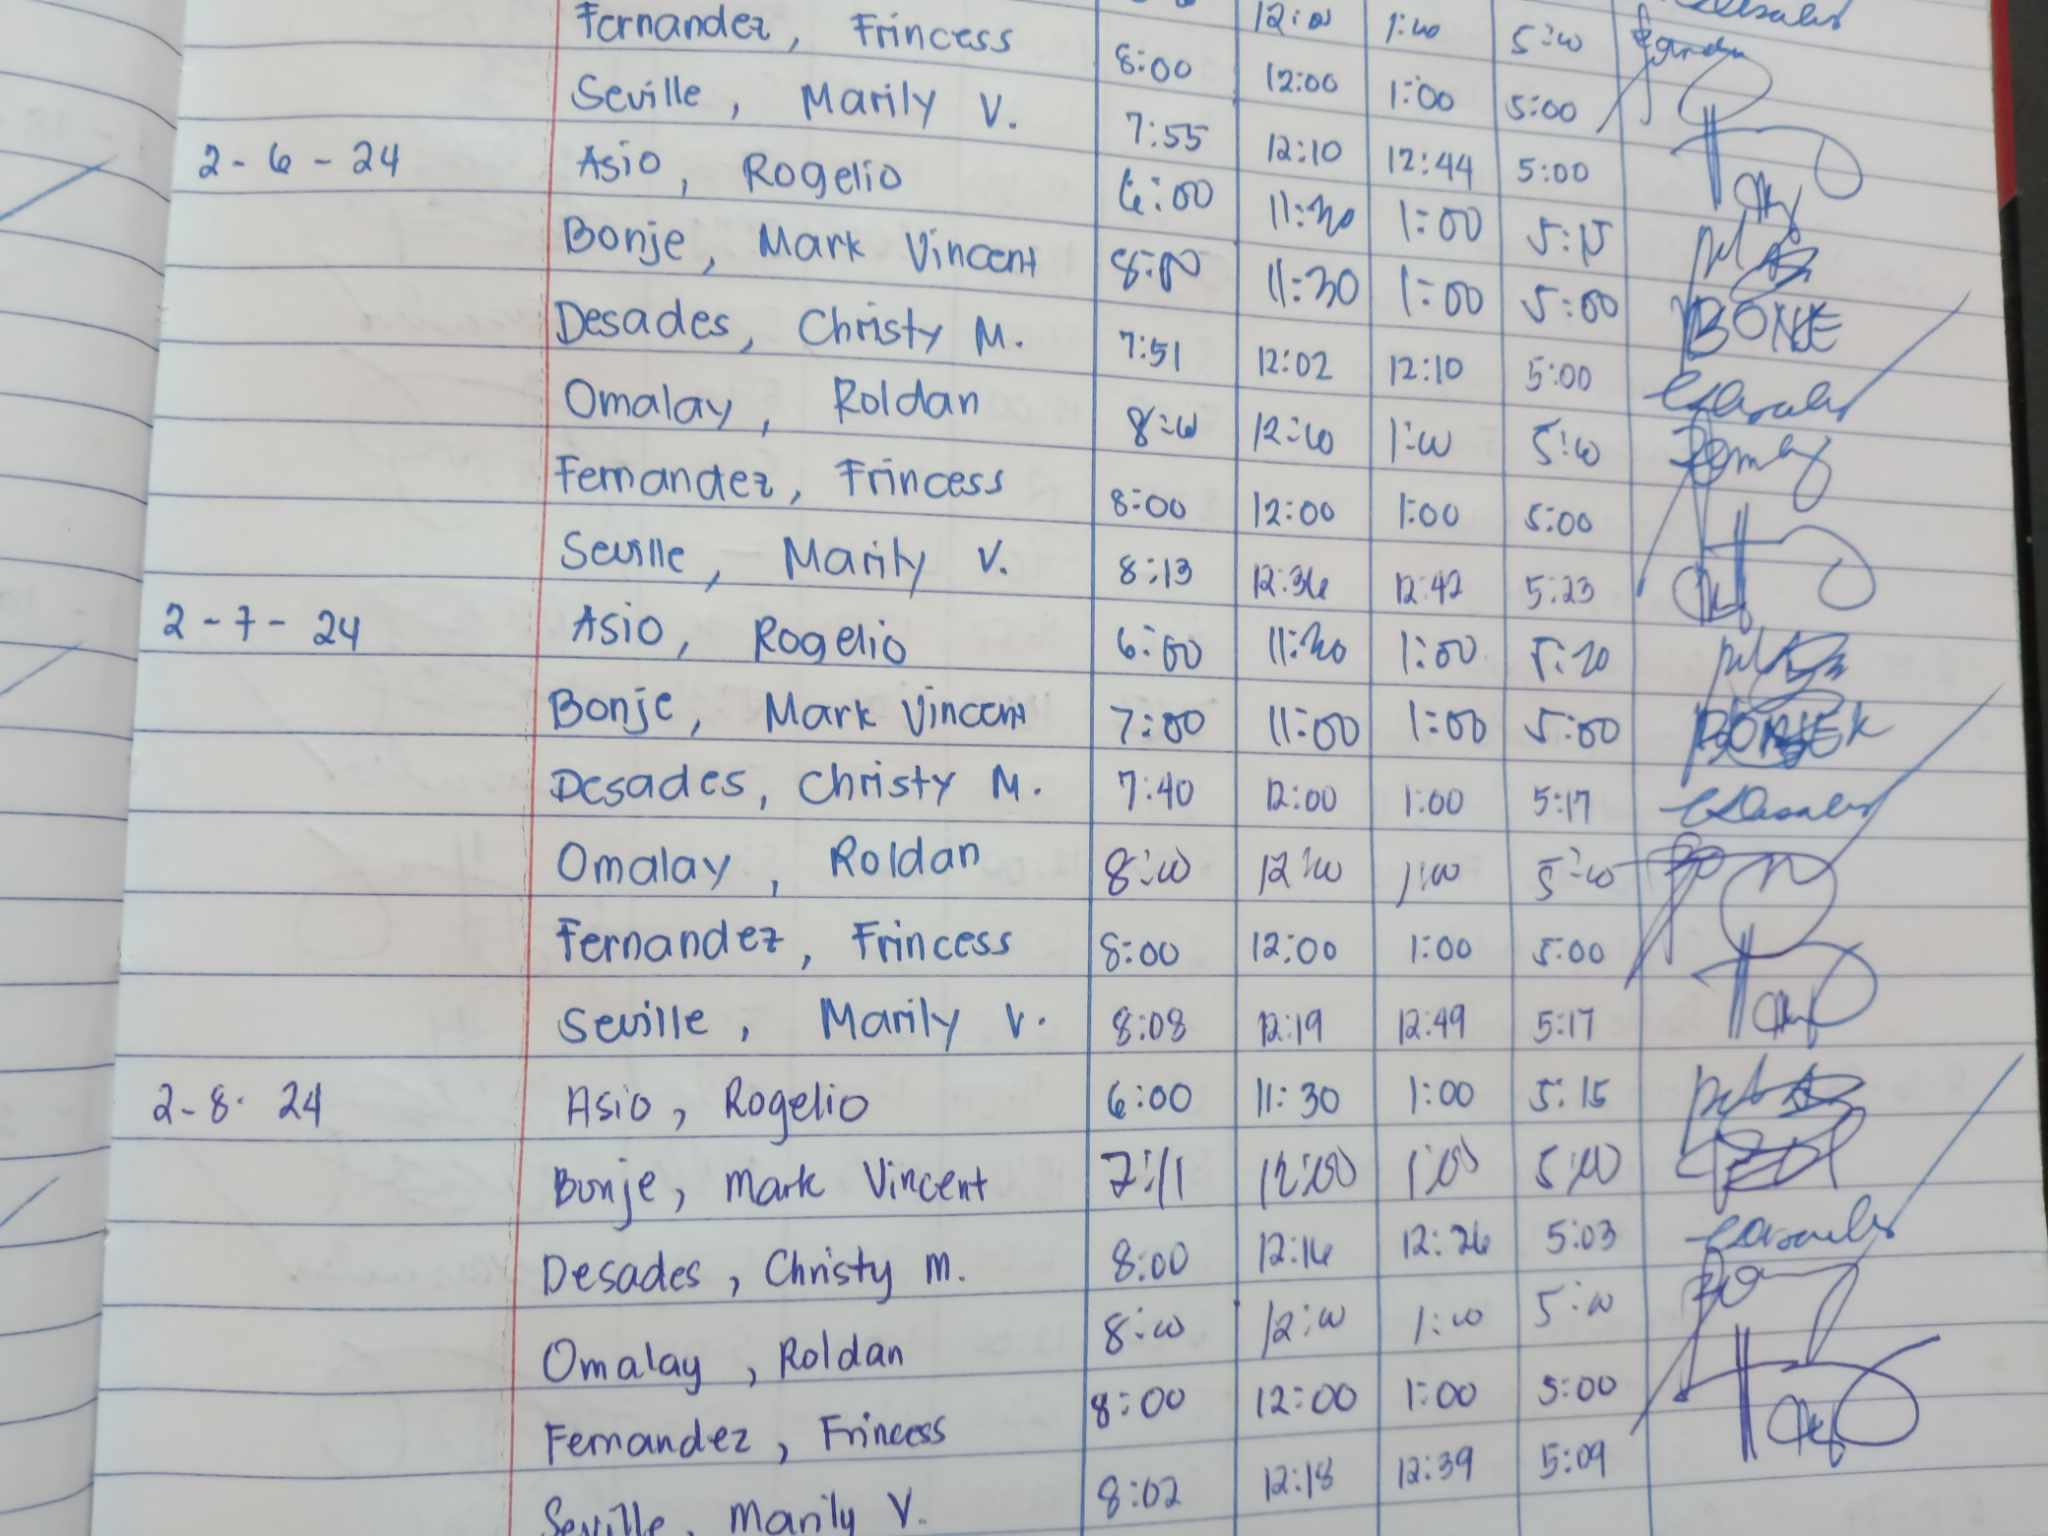 12:00 1:00 5:00
Fernandez, Frincess 8:00 12:00 1:00 5:00
Seville, Marily V. 7:55 12:10 12:44 5:00
2-6-24 Asio, Rogelio 6:00 11:30 1:00 5:15
Bonje, Mark Vincent 8:00 11:30 1:00 5:00 BONJE
Desades, Christy M. 7:51 12:02 12:10 5:00
Omalay, Roldan 8:00 12:00 1:00 5:00
Fernandez, Frincess 8:00 12:00 1:00 5:00
Seville, Marily V. 8:13 12:36 12:42 5:23
2-7-24 Asio, Rogelio 6:00 11:30 1:00 5:20
Bonje, Mark Vincent 7:00 11:00 1:00 5:00
Desades, Christy M. 7:40 12:00 1:00 5:17
Omalay, Roldan 8:00 12:00 1:00 5:00
Fernandez, Frincess 8:00 12:00 1:00 5:00
Seville, Marily V. 8:08 12:19 12:49 5:17
2-8-24 Asio, Rogelio 6:00 11:30 1:00 5:15
Bonje, Mark Vincent 7:11 12:00 1:00 5:00
Desades, Christy M. 8:00 12:16 12:26 5:03
Omalay, Roldan 8:00 12:00 1:00 5:00
Fernandez, Frincess 8:00 12:00 1:00 5:00
Seville, Marily V. 8:02 12:18 12:39 5:09